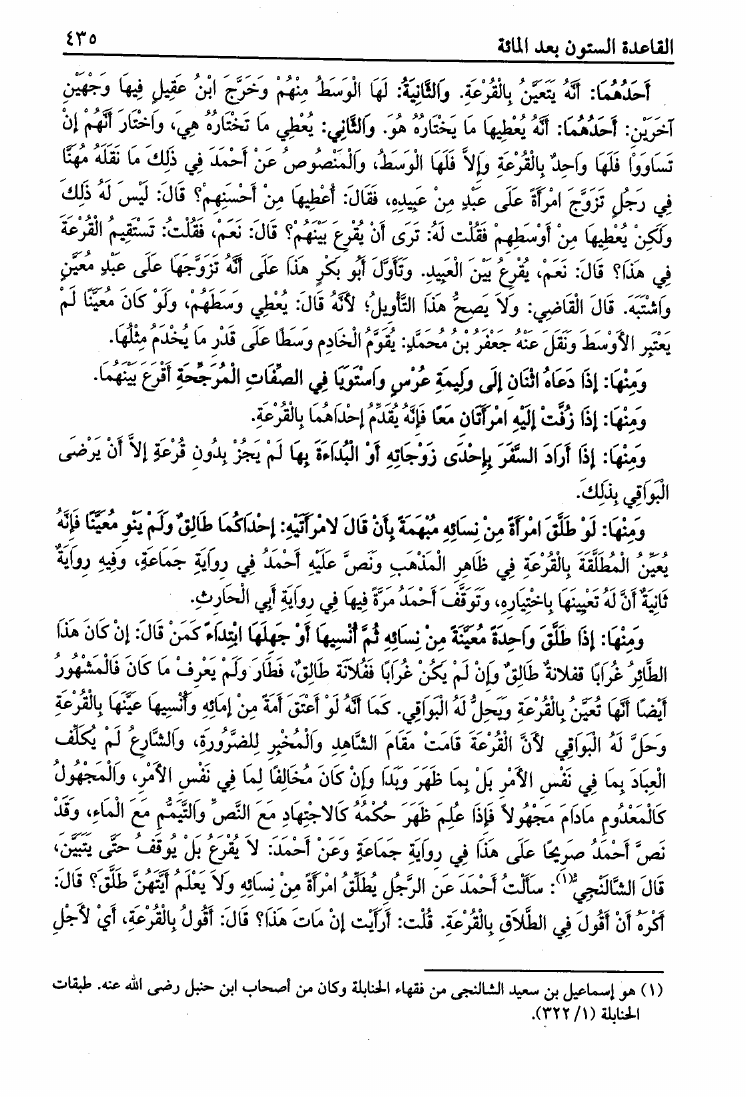 القاعدة الستون بعد المائة ٤٣٥
أَحَدُهُمَا: أَنَّهُ يَتَعَيَّنُ بِالْقُرْعَةِ. وَالثَّانِيَةُ: لَهَا الْوَسَطُ مِنْهُمْ وَخَرَّجَ ابْنُ عَقِيلٍ فِيهَا وَجْهَيْنِ
آخَرَيْنِ: أَحَدُهُمَا: أَنَّهُ يُعْطِيهَا مَا يَخْتَارُهُ هُوَ. وَالثَّانِي: يُعْطِي مَا تَخْتَارُهُ هِيَ، وَاخْتَارَ أَنَّهُمْ إنْ
تَسَاوَوْا فَلَهَا وَاحِدٌ بِالْقُرْعَةِ وَإِلاَّ فَلَهَا الْوَسَطُ، وَالْمَنْصُوصُ عَنْ أَحْمَدَ فِي ذَلِكَ مَا نَقَلَهُ مُهَنَّا
فِي رَجُلٍ تَزَوَّجَ امْرَأَةً عَلَى عَبْدٍ مِنْ عَبِيدِهِ، فَقَالَ: أُعْطِيهَا مِنْ أَحْسَنِهِمْ؟ قَالَ: لَيْسَ لَهُ ذَلِكَ
وَلَكِنْ يُعْطِيهَا مِنْ أَوْسَطِهِمْ فَقُلْت لَهُ: تَرَى أَنْ يُقْرِعَ بَيْنَهُمْ؟ قَالَ: نَعَمْ، فَقُلْتُ: تَسْتَقِيمُ الْقُرْعَةُ
فِي هَذَا؟ قَالَ: نَعَمْ، يُقْرِعُ بَيْنَ الْعَبِيدِ. وَتَأَوَّلَ أَبُو بَكْرٍ هَذَا عَلَى أَنَّهُ تَزَوَّجَهَا عَلَى عَبْدٍ مُعَيَّنٍ
وَاشْتَبَهَ. قَالَ الْقَاضِي: وَلاَ يَصِحُّ هَذَا التَّأْوِيلُ؛ لأَنَّهُ قَالَ: يُعْطِي وَسَطَهُمْ، وَلَوْ كَانَ مُعَيَّنًا لَمْ
يَعْتَبِرِ الأَوْسَطَ وَنَقَلَ عَنْهُ جَعْفَرُ بْنُ مُحَمَّدٍ: يُقَوَّمُ الْخَادِمِ وَسَطًا عَلَى قَدْرِ مَا يُخْدَمُ مِثْلُهَا.
وَمِنْهَا: إذَا دَعَاهُ اثْنَانِ إلَى وَلِيمَةِ عُرْسٍ وَاسْتَوَيَا فِي الصِّفَاتِ الْمُرَجِّحَةِ أَقْرَعَ بَيْنَهُمَا.
وَمِنْهَا: إذَا زُفَّتْ إلَيْهِ امْرَأَتَانِ مَعًا فَإِنَّهُ يُقَدِّمُ إحْدَاهُمَا بِالْقُرْعَةِ.
وَمِنْهَا: إذَا أَرَادَ السَّفَرَ بِإِحْدَى زَوْجَاتِهِ أَوْ الْبُدَاءَةَ بِهَا لَمْ يَجُزْ بِدُونِ قُرْعَةٍ إلاَّ أَنْ يَرْضَى
الْبَوَاقِي بِذَلِكَ.
وَمِنْهَا: لَوْ طَلَّقَ امْرَأَةً مِنْ نِسَائِهِ مُبْهَمَةً بِأَنْ قَالَ لامْرَأَتَيْهِ: إحْدَاكُمَا طَالِقٌ وَلَمْ يَنْوِ مُعَيَّنًا فَإِنَّهُ
يُعَيِّنُ الْمُطَلَّقَةَ بِالْقُرْعَةِ فِي ظَاهِرِ الْمَذْهَبِ وَنَصَّ عَلَيْهِ أَحْمَدُ فِي رِوَايَةِ جَمَاعَةٍ، وَفِيهِ رِوَايَةٌ
ثَانِيَةٌ أَنَّ لَهُ تَعْيِينَهَا بِاخْتِيَارِهِ، وَتَوَقَّفَ أَحْمَدُ مَرَّةً فِيهَا فِي رِوَايَةِ أَبِي الْحَارِثِ.
وَمِنْهَا: إذَا طَلَّقَ وَاحِدَةً مُعَيَّنَةً مِنْ نِسَائِهِ ثُمَّ أُنْسِيهَا أَوْ جَهِلَهَا ابْتِدَاءً كَمَنْ قَالَ: إنْ كَانَ هَذَا
الطَّائِرُ غُرَابًا فَفلانةٌ طَالِقٌ وَإِنْ لَمْ يَكُنْ غُرَابًا فَفُلاَنَة طَالِقٌ، فَطَارَ وَلَمْ يَعْرِفْ مَا كَانَ فَالْمَشْهُورُ
أَيْضًا أَنَّهَا تُعَيَّنُ بِالْقُرْعَةِ وَيَحِلُّ لَهُ الْبَوَاقِي. كَمَا أَنَّهُ لَوْ أَعْتَقَ أَمَةً مِنْ إمَائِهِ وَأُنْسِيهَا عَيَّنَهَا بِالْقُرْعَةِ
وَحَلَّ لَهُ الْبَوَاقِي لأَنَّ الْقُرْعَةَ قَامَتْ مَقَامَ الشَّاهِدِ وَالْمُخْبِرِ لِلضَّرُورَةِ، وَالشَّارِعُ لَمْ يُكَلِّفْ
الْعِبَادَ بِمَا فِي نَفْسِ الأَمْرِ بَلْ بِمَا ظَهَرَ وَبَدَا وَإِنْ كَانَ مُخَالِفًا لِمَا فِي نَفْسِ الأَمْرِ، وَالْمَجْهُولُ
كَالْمَعْدُومِ مَادَامَ مَجْهُولاً فَإِذَا عُلِمَ ظَهَرَ حُكْمُهُ كَالاِجْتِهَادِ مَعَ النَّصِّ وَالتَّيَمُّمِ مَعَ الْمَاءِ، وَقَدْ
نَصَّ أَحْمَدُ صَرِيحًا عَلَى هَذَا فِي رِوَايَةِ جَمَاعَةٍ وَعَنْ أَحْمَدَ: لاَ يُقْرَعُ بَلْ يُوقَفُ حَتَّى يَتَبَيَّنَ،
قَالَ الشَّالَنْجِيُّ(١): سَأَلْتُ أَحْمَدَ عَنِ الرَّجُلِ يُطَلِّقُ امْرَأَةً مِنْ نِسَائِهِ وَلاَ يَعْلَمُ أَيَّتَهُنَّ طَلَّقَ؟ قَالَ:
أَكْرَهُ أَنْ أَقُولَ فِي الطَّلاَقِ بِالْقُرْعَةِ. قُلْت: أَرَأَيْت إنْ مَاتَ هَذَا؟ قَالَ: أَقُولُ بِالْقُرْعَةِ، أَيْ لأَجْلِ
(١) هو إسماعيل بن سعيد الشالنجى من فقهاء الحنابلة وكان من أصحاب ابن حنبل رضى الله عنه. طبقات
الحنابلة (١/ ٣٢٢).